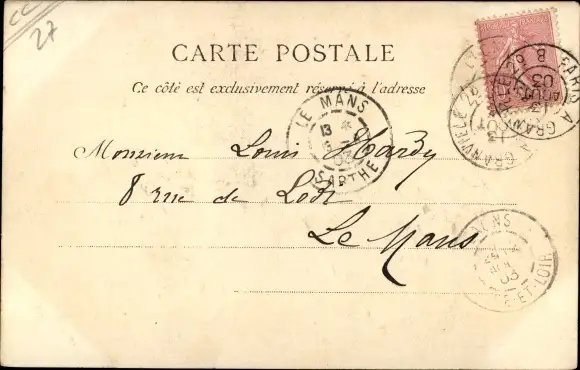 27
CARTE POSTALE
Ce côté est exclusivement réservé à l'adresse
LE MANS
13
03
SARTHE
Monsieur Louis Hardy
8 rue de Lodi
Le Mans
PARIS A GRANVILLE
03
ET-LOIR
03